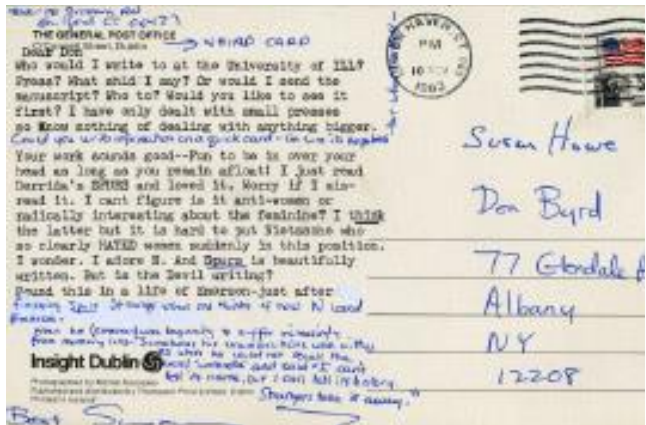 THE GENERAL POST OFFICE
Street, Dublin
→ WEIRD CARD
Dear Don
Who would I write to at the University of Ill?
Press? What shld I say? Or would I send the
manuscript? Who to? Would you like to see it
first? I have only dealt with small presses
so know nothing of dealing with anything bigger.
Could you write information on a quick card
Your work sounds good--Fun to be in over your
head as long as you remain afloat! I just read
Derrida's SPURS and loved it. Worry if I mis-
read it. I cant figure is it anti-women or
radically interesting about the feminine? I think
the latter but it is hard to put Nietzsche who
so clearly HATED women suddenly in this position.
I wonder. I adore N. And Spurs is beautifully
written. But is the Devil writing?
Found this in a life of Emerson-just after
finishing Spurs
when he (Emerson) was beginning to suffer increasingly
from memory loss
he could not recall the
word umbrella and said "I can't
tell its name, but I can tell its history.
Strangers take it away."
Insight Dublin
Best
HAVEN, CT
PM
1983
Susan Howe
Don Byrd
77 Glendale
Albany
NY
12208